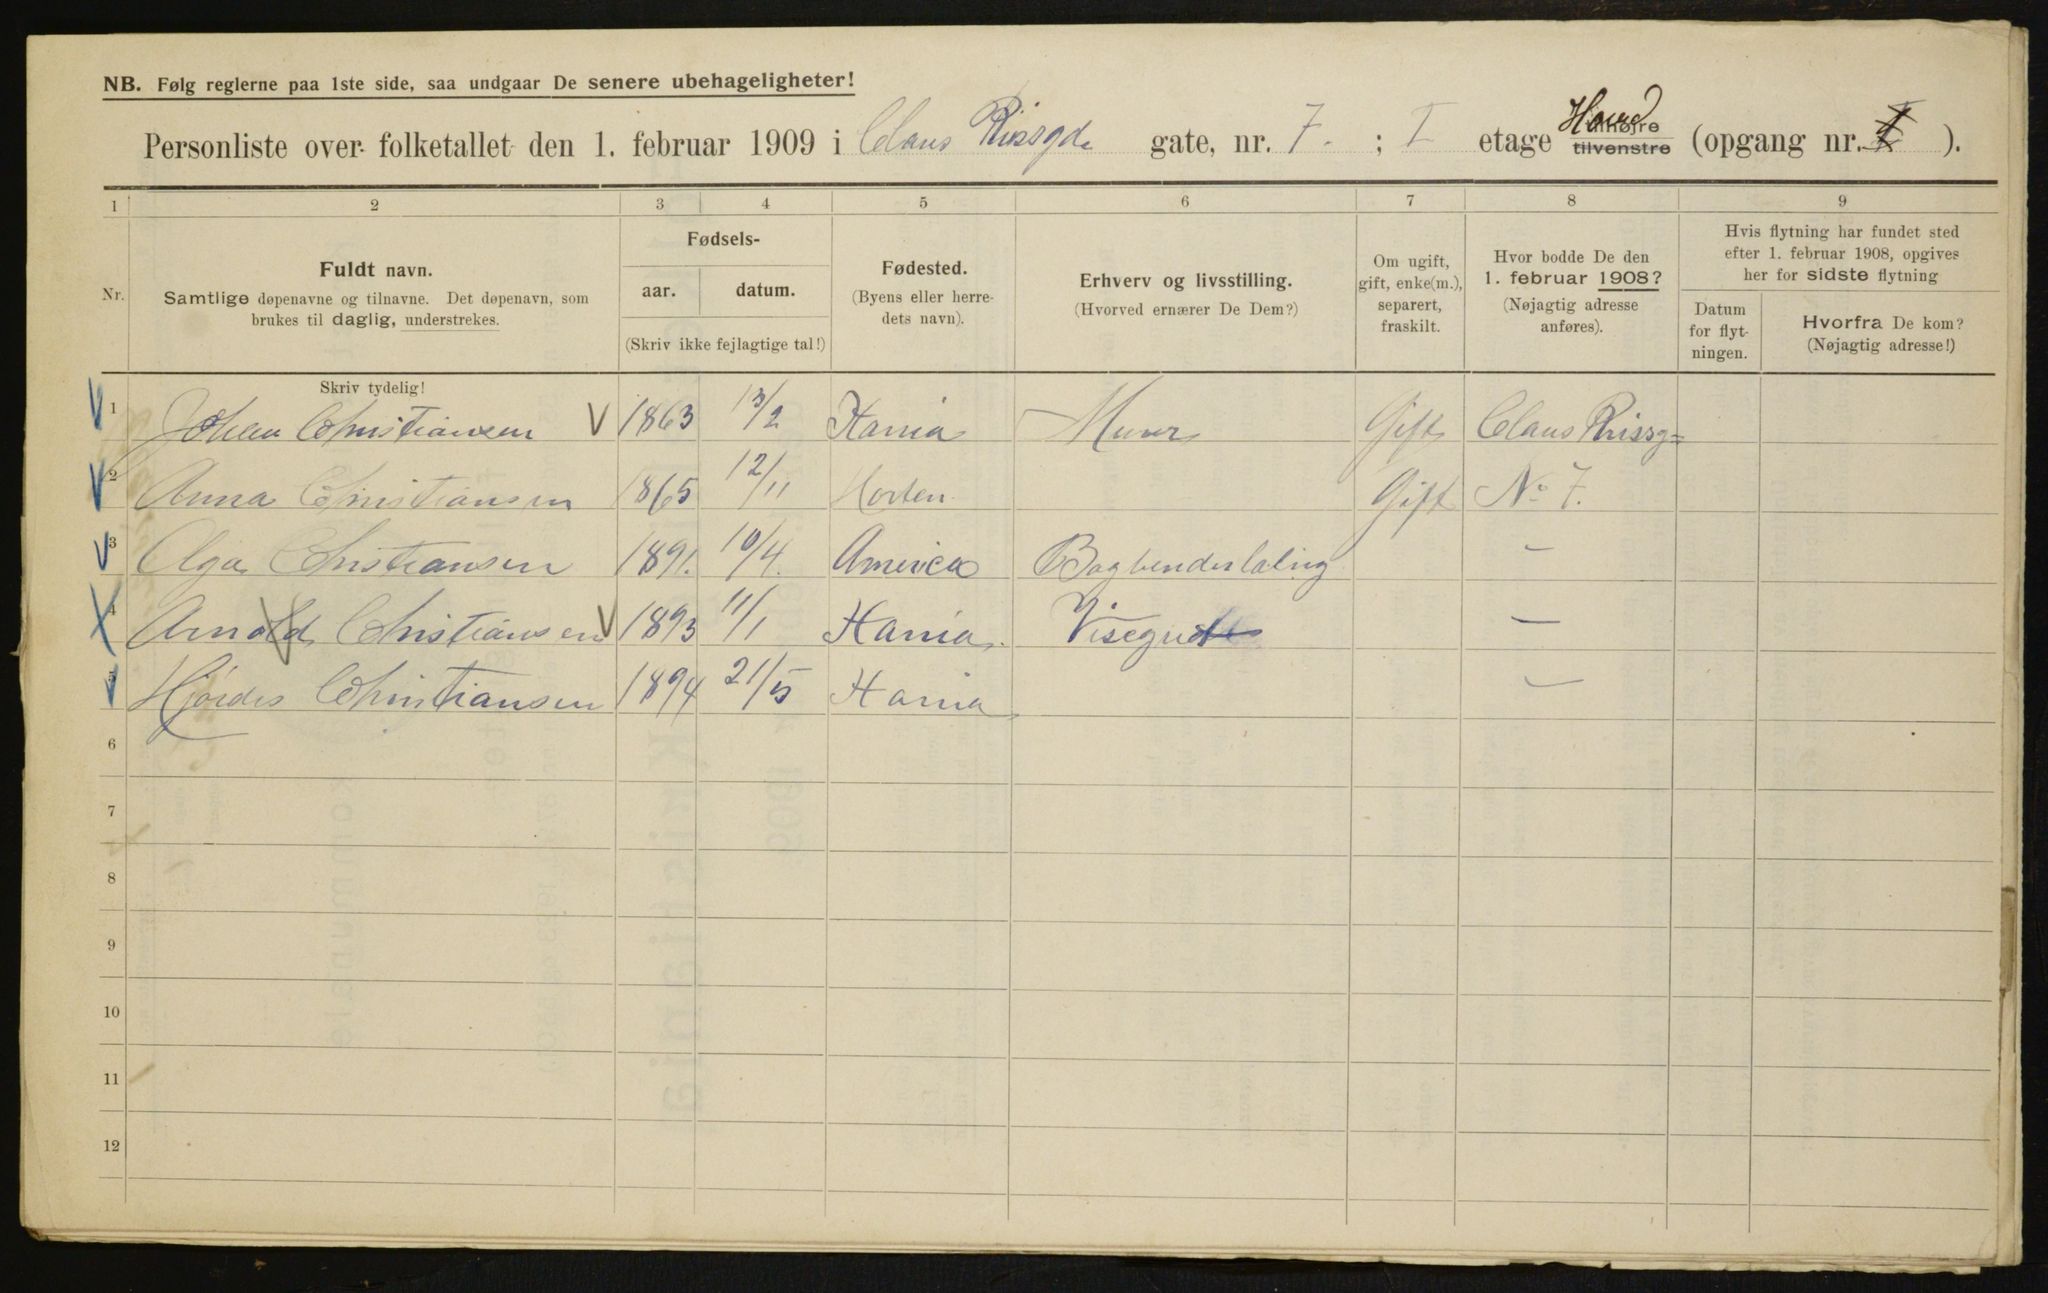 NB. Følg reglerne paa 1ste side, saa undgaar De senere ubehageligheter!
Personliste over folketallet den 1. februar 1909 i Claus Riissgde gate, nr. 7. ; I etage tilhøjre tilvenstre (opgang nr. ).
1 2 3 4 5 6 7 8 9
Nr.
Fuldt navn.
Samtlige døpenavne og tilnavne. Det døpenavn, som
brukes til daglig, understrekes.
Skriv tydelig!
Fødsels-
aar. datum.
(Skriv ikke fejlagtige tal!)
Fødested.
(Byens eller herre-
dets navn).
Erhverv og livsstilling.
(Hvorved ernærer De Dem?)
Om ugift,
gift, enke(m.),
separert,
fraskilt.
Hvor bodde De den
1. februar 1908?
(Nøjagtig adresse
anføres).
Hvis flytning har fundet sted
efter 1. februar 1908, opgives
her for sidste flytning
Datum
for flyt-
ningen.
Hvorfra De kom?
(Nøjagtig adresse!)
1 Johan Christiansen V 1863 13/2 Kania Murer Gift Claus Riissg=
2 Anna Christiansen 1865 12/11 Horten Gift No 7.
3 Olga Christiansen 1891. 10/4. America Bogbinderlæling –
4 Arnold Christiansen V 1893 11/1 Kania. Visegut –
5 Hjørdis Christiansen 1894 21/5 Kania –
6
7
8
9
10
11
12